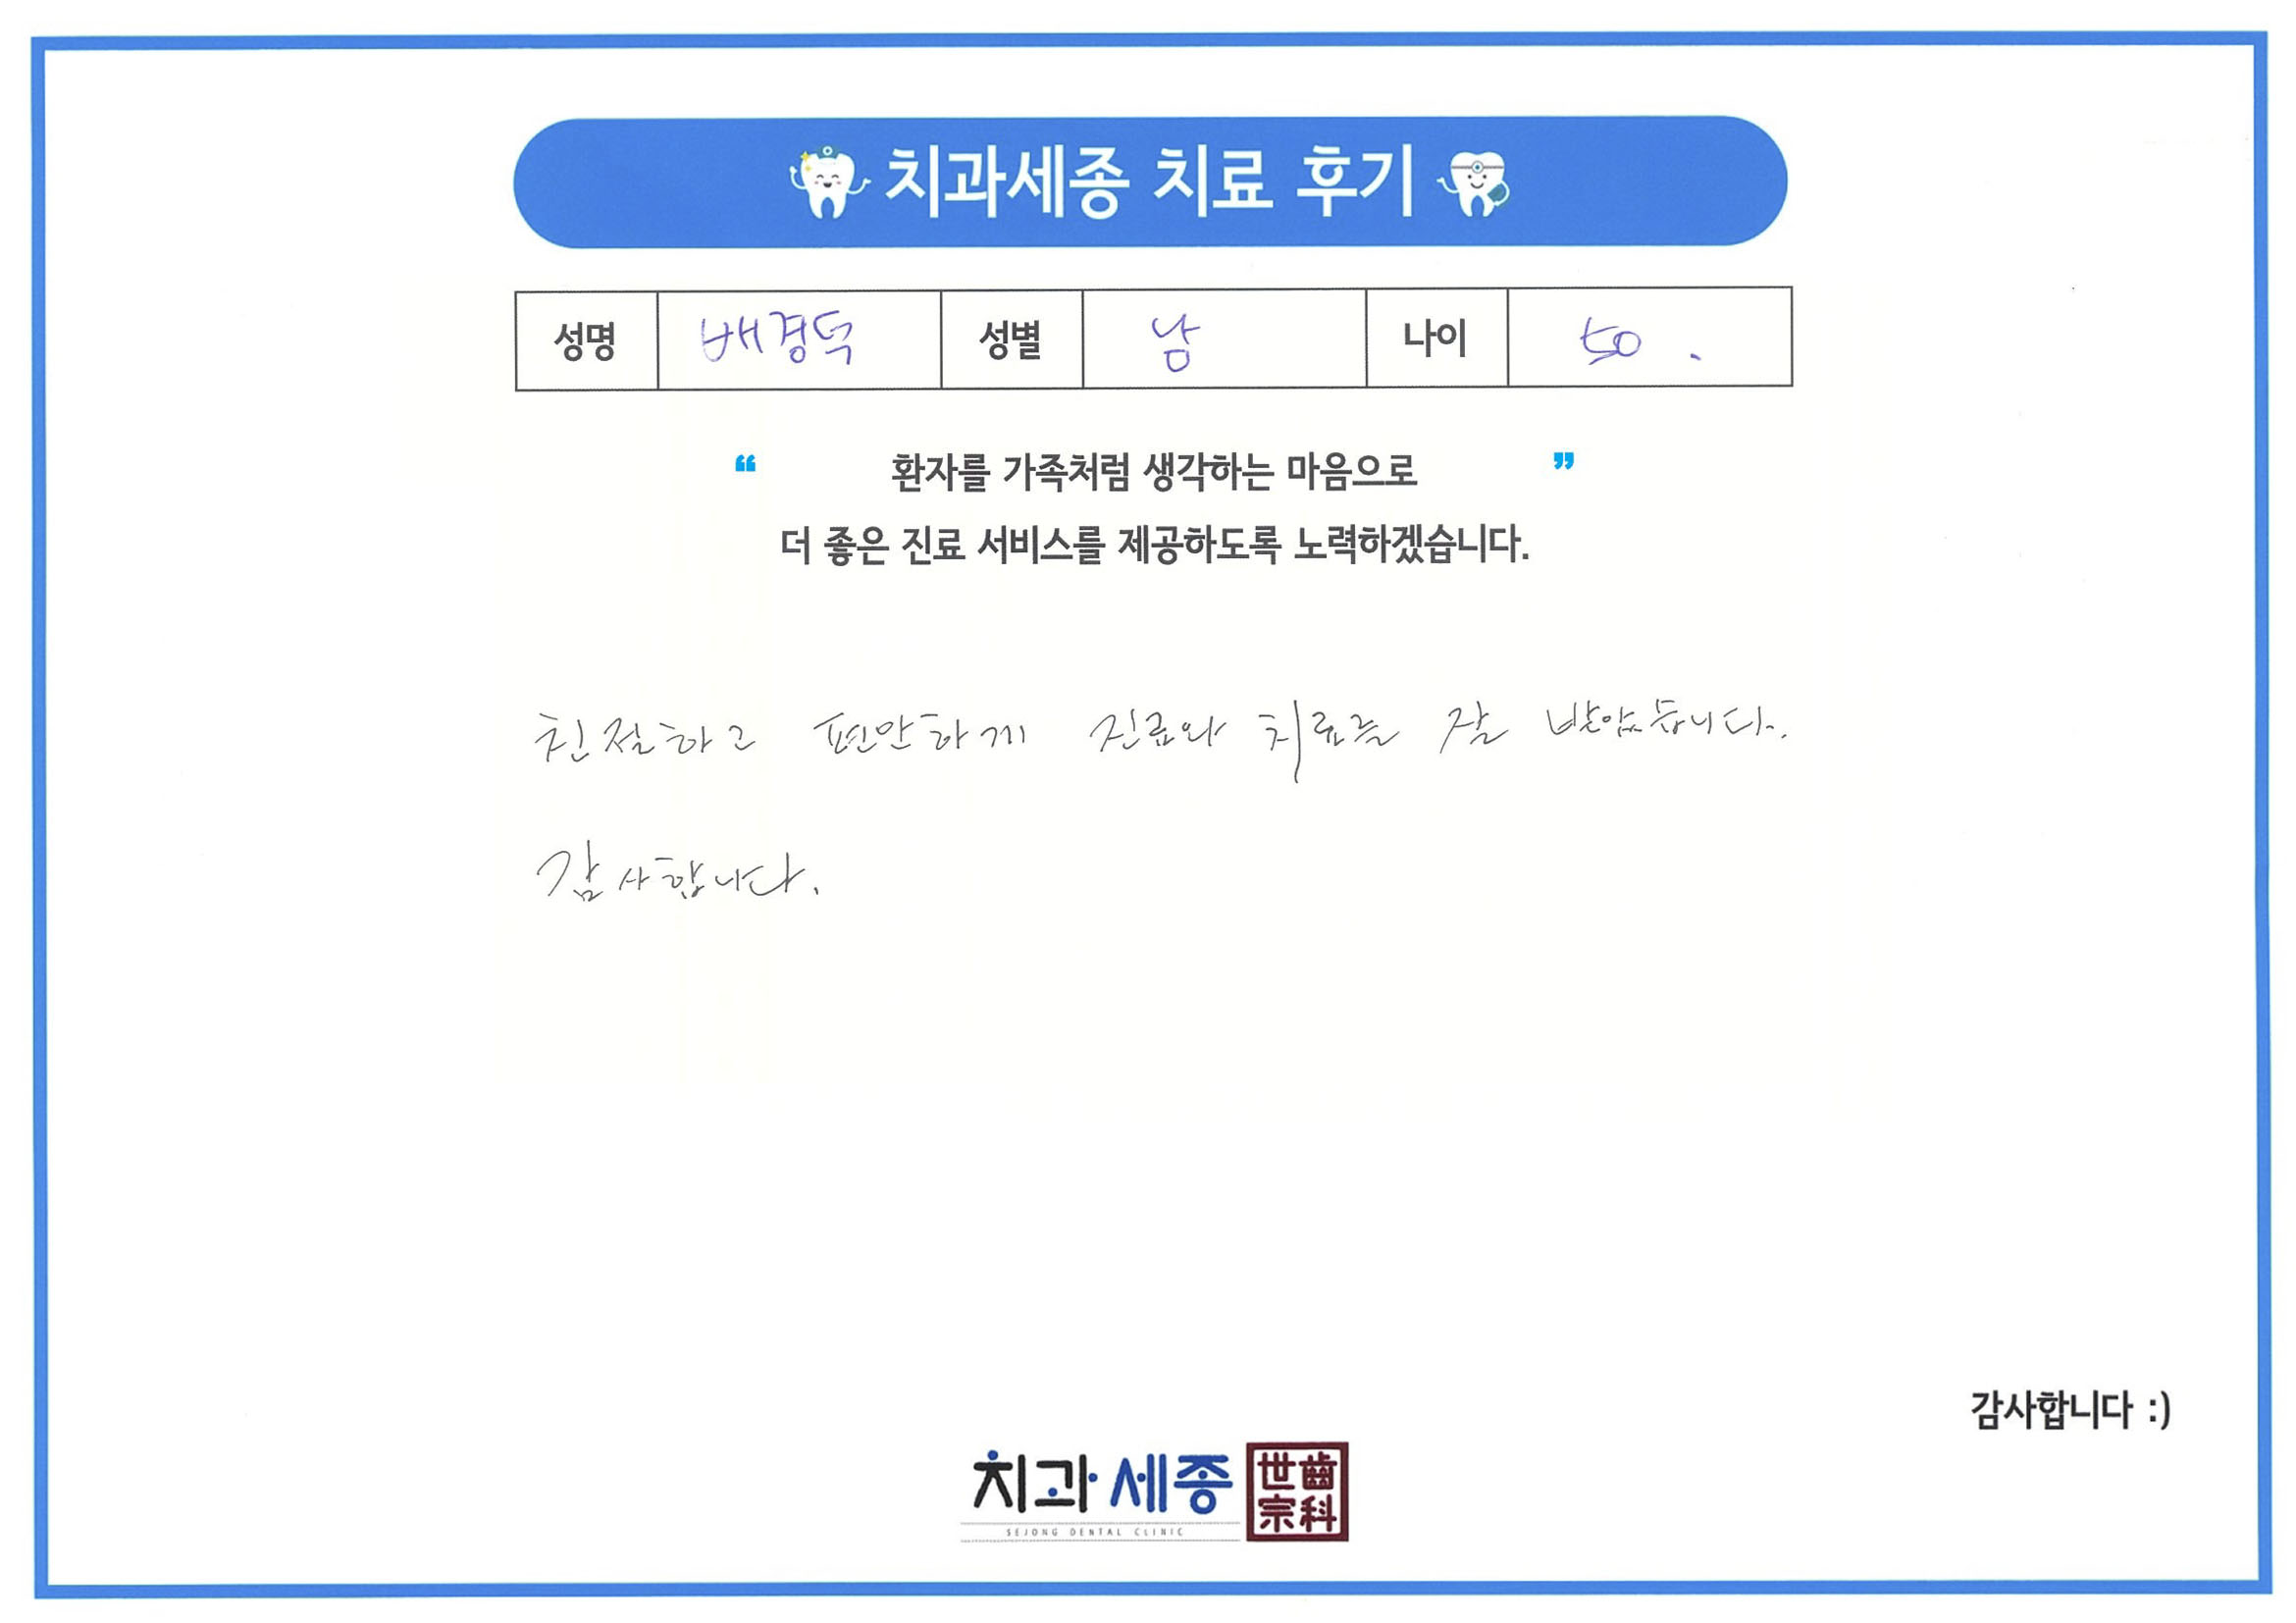 치과세종 치료 후기
성명 배경덕 성별 남 나이 50 .
“ 환자를 가족처럼 생각하는 마음으로 ”
더 좋은 진료 서비스를 제공하도록 노력하겠습니다.
친절하고 편안하게 진료와 치료를 잘 받았습니다.
감사합니다.
감사합니다 :)
치과세종 世齒宗科
SEJONG DENTAL CLINIC